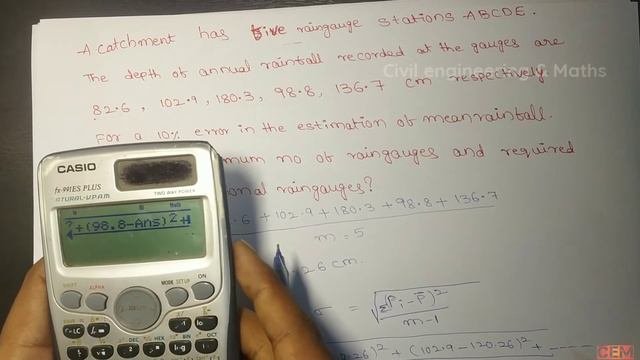 A catchment has five raingauge stations ABCDE.
The depth of annual rainfall recorded at the gauges are
Civil engineering & Maths
82.6, 102.9, 180.3, 98.8, 136.7 cm respectively.
For a 10% error in the estimation of mean rainfall.
mum no of raingauges and required
onal raingauges?
.6 + 102.9 + 180.3 + 98.8 + 136.7
m = 5
.26 cm.
σ = √Σ(Pi - P̄)²
m-1
0.26)² + (102.9 - 120.26)² + -----
CASIO
fx-991ES PLUS
NATURAL-V.P.A.M.
TWO WAY POWER
Math
²+(98.8-Ans)²+
SHIFT
ALPHA
MODE SETUP
ON
CEM